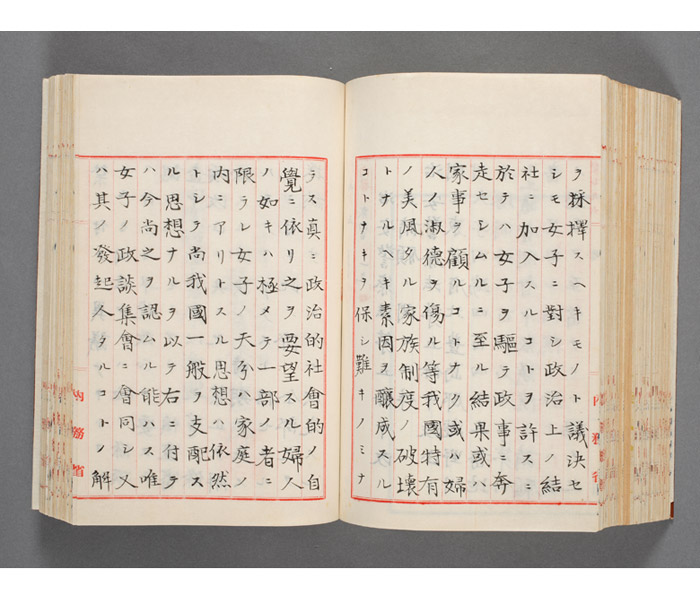 ヲ採擇スヘキモノト議決セ
シモ女子ニ對シ政治上ノ結
社ニ加入スルコトヲ許スニ
於テハ女子ヲ驅テ政事ニ奔
走セシムルニ至ル結果或ハ
家事ヲ顧ルコトナク或ハ婦
人ノ淑德ヲ傷ル等我國特有
ノ美風タル家族制度ノ破壞
トナルヘキ素因ヲ釀成スル
コトナキヲ保シ難キノミナ
ラス眞ニ政治的社會的ノ自
覺ニ依リ之ヲ要望スル婦人
ノ如キハ極メテ一部ノ者ニ
限ラレ女子ノ天分ハ家庭ノ
内ニアリトスル思想ハ依然
トシテ尚我國一般ヲ支配ス
ル思想ナルヲ以テ右ニ付テ
ハ今尚之ヲ認ムル能ハス唯
女子ノ政談集會ニ會同シ又
ハ其ノ發起人タルコトノ解
内務省